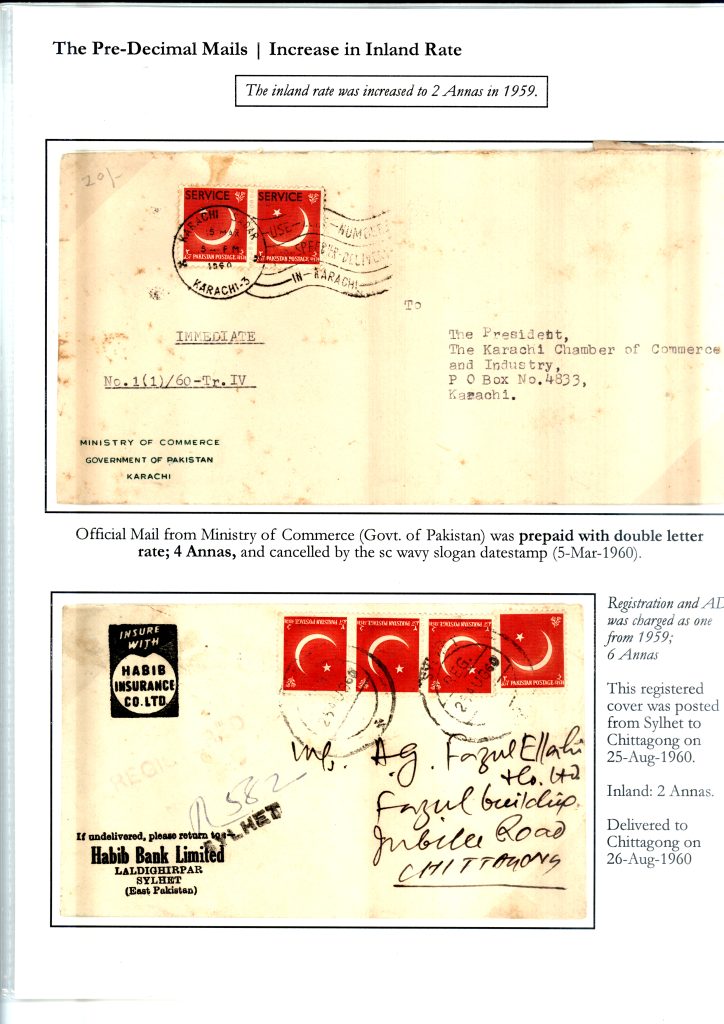 The Pre-Decimal Mails | Increase in Inland Rate
The inland rate was increased to 2 Annas in 1959.
20/-
SERVICE SERVICE
PAKISTAN POSTAGE PAKISTAN POSTAGE
KARACHI
5 MAR
5 - PM
1960
KARACHI-3
USE
SPEEDER DELIVERY
IN KARACHI
To
IMMEDIATE
No.1(1)/60-Tr.IV
The President,
The Karachi Chamber of Commerce
and Industry,
P O Box No.4833,
Karachi.
MINISTRY OF COMMERCE
GOVERNMENT OF PAKISTAN
KARACHI
Official Mail from Ministry of Commerce (Govt. of Pakistan) was prepaid with double letter
rate; 4 Annas, and cancelled by the sc wavy slogan datestamp (5-Mar-1960).
INSURE
WITH
HABIB
INSURANCE
CO. LTD.
PAKISTAN POSTAGE PAKISTAN POSTAGE PAKISTAN POSTAGE PAKISTAN POSTAGE
M/s. A.G. Fazul Ellahi
& Co. Ltd
Fazul building.
Jubilee Road
CHITTAGONG
R 582
SYLHET
If undelivered, please return to:-
Habib Bank Limited
LALDIGHIRPAR
SYLHET
(East Pakistan)
Registration and AD
was charged as one
from 1959;
6 Annas
This registered
cover was posted
from Sylhet to
Chittagong on
25-Aug-1960.
Inland: 2 Annas.
Delivered to
Chittagong on
26-Aug-1960